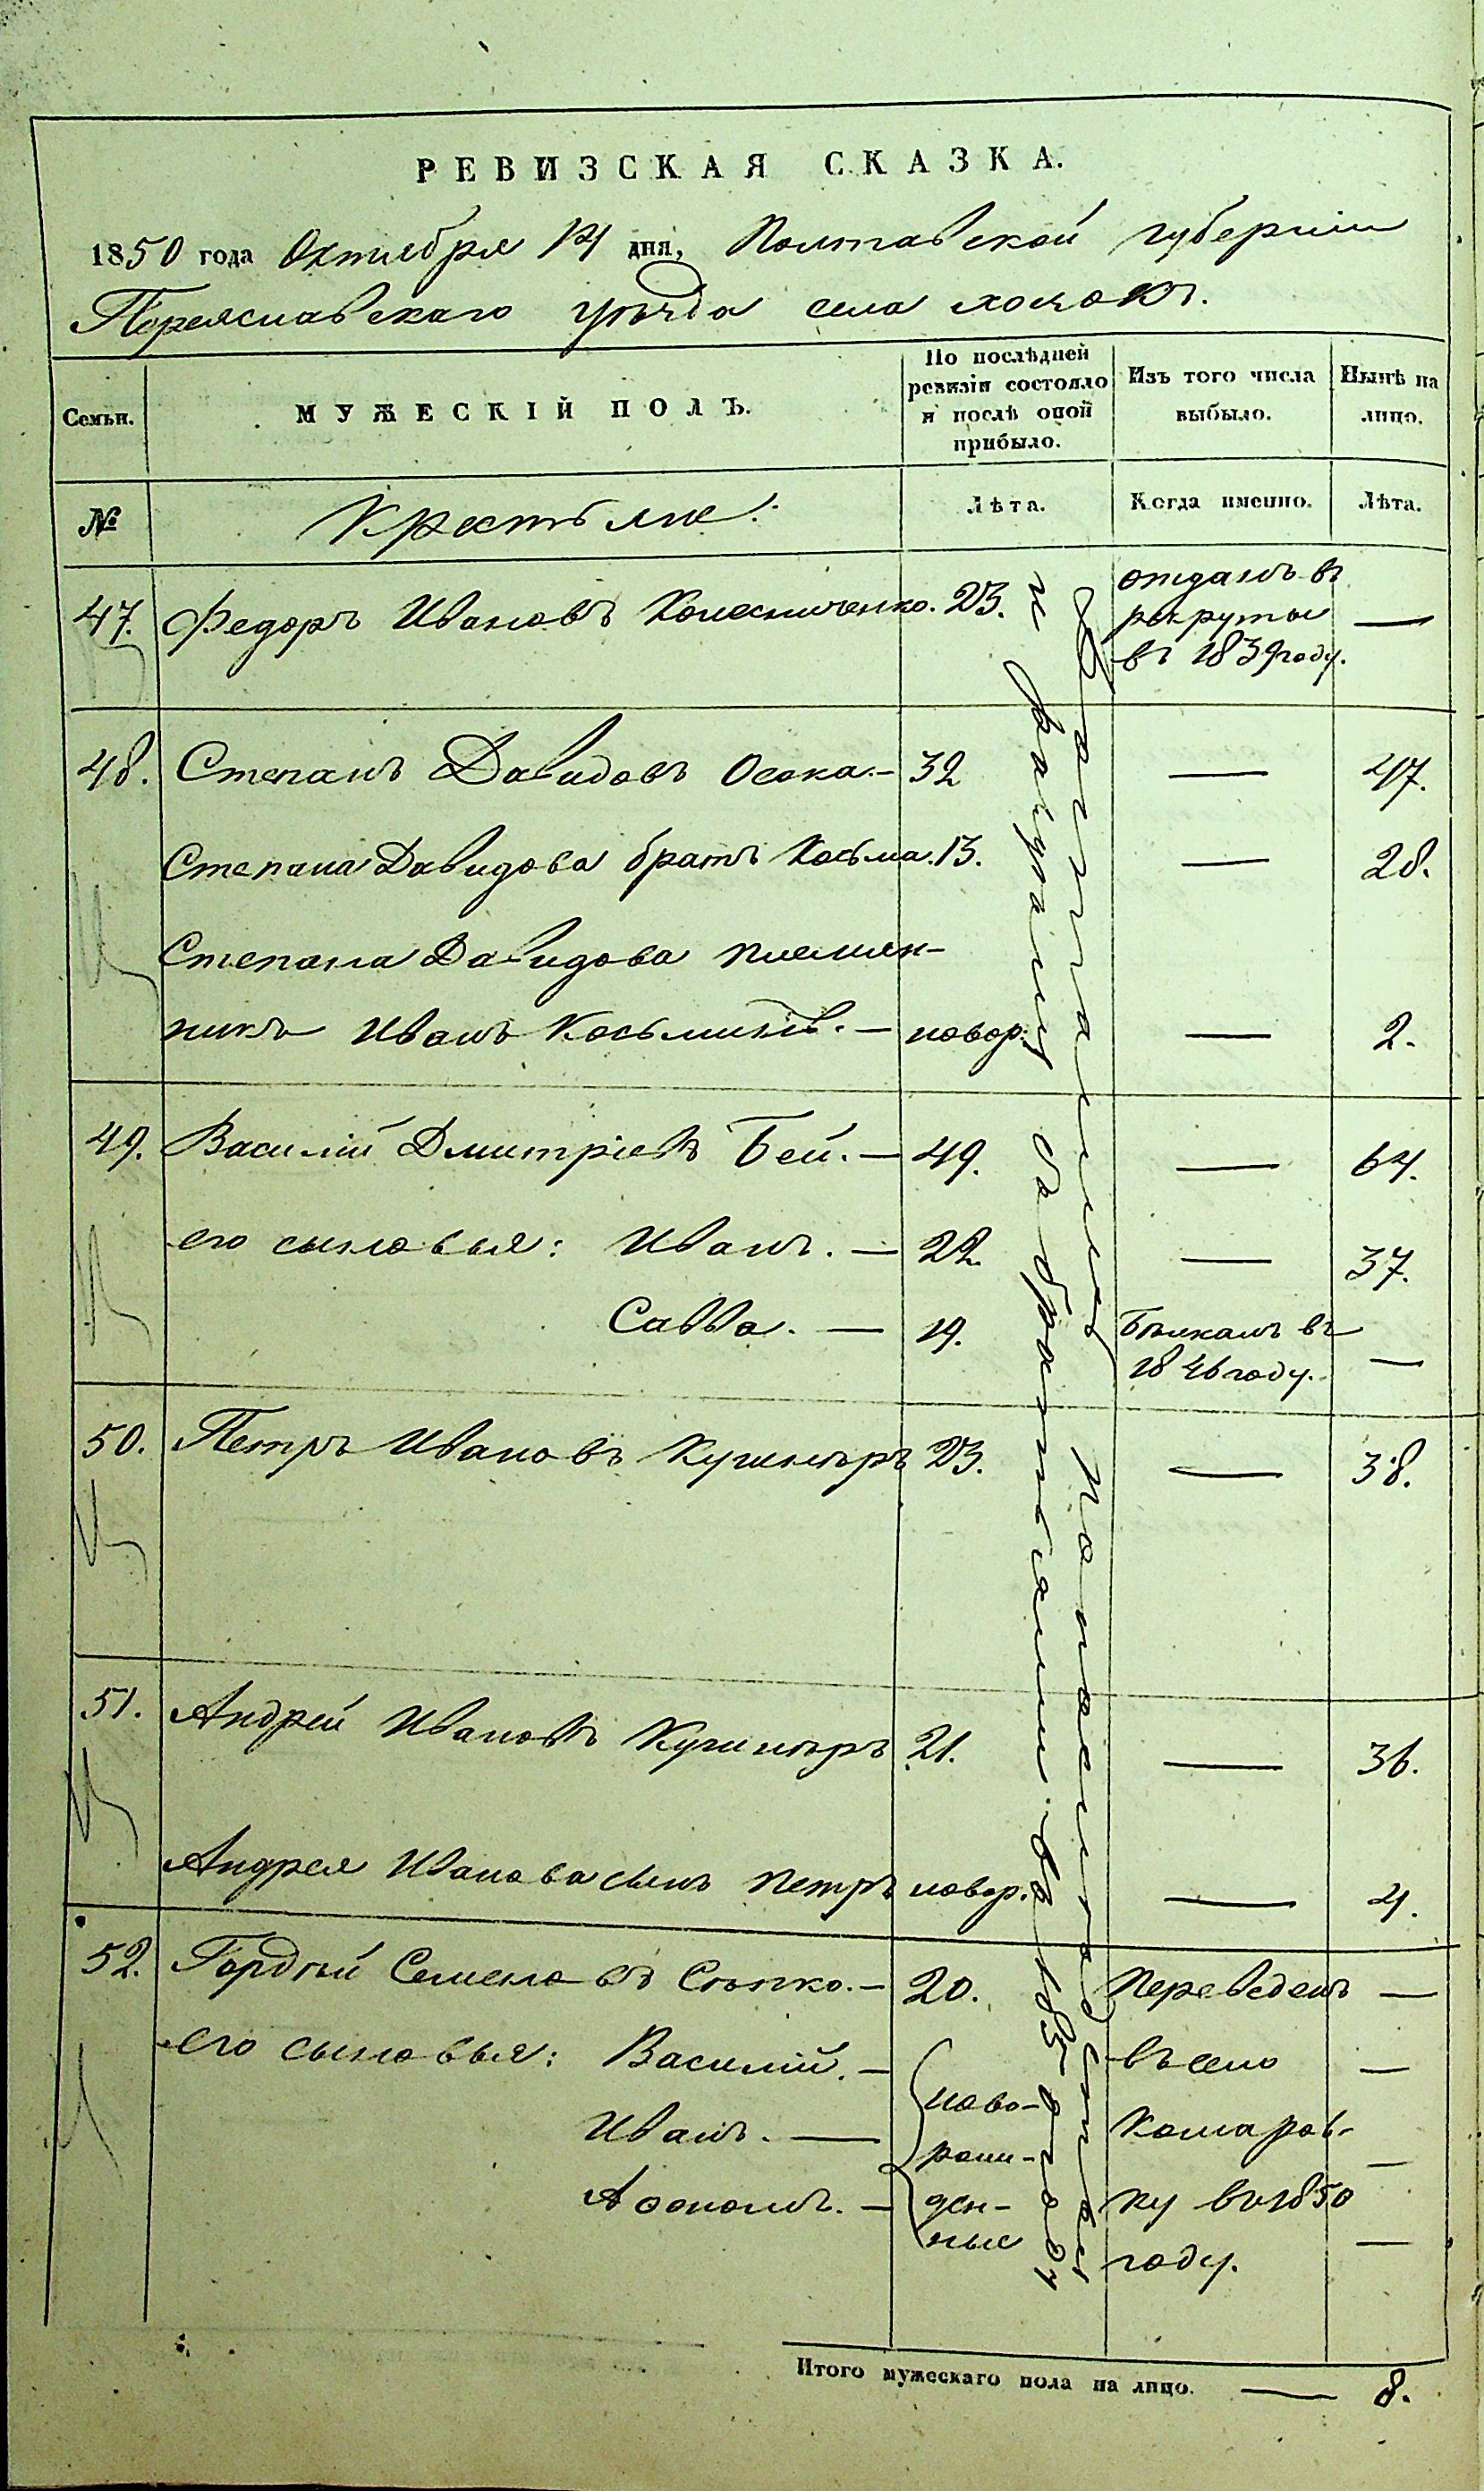 РЕВИЗСКАЯ СКАЗКА.
1850 года Октября 14 дня, Полтавской губернии
Переяславскаго уѣзда села хоцокъ.
Семьи.
МУЖЕСКІЙ ПОЛЪ.
По послѣдней ревизіи состояло и послѣ оной прибыло.
Изъ того числа выбыло.
Нынѣ на лицо.
№
Крестьяне:
Лѣта.
Когда именно.
Лѣта.
47. Федоръ Ивановъ Колесниченко. 23. отданъ въ рекруты въ 1839 году. —
48. Степанъ Давидовъ Осока. — 32 — 47.
Степана Давидова братъ Косьма. 13. — 28.
Степана Давидова племян-
никъ Иванъ Косьминъ. — новор. — 2.
49. Василій Дмитріевъ Бей. — 49. — 64.
его сыновья: Иванъ. — 22. — 37.
Савва. — 19. Бѣжалъ въ 1846 году. —
50. Петръ Ивановъ 23. — 38.
51. Андрей Ивановъ 21. — 36.
Андрея Иванова сынъ Петръ новор. — 4.
52. Гордѣй Семеновъ — 20. Переведенъ —
его сыновья: Василій. — ново- въ село —
Иванъ. — рож- Комаров- —
Афонасъ. — ден- ку въ 1850 —
ные году.
въ 1835 году
Итого мужескаго пола на лицо. — 8.